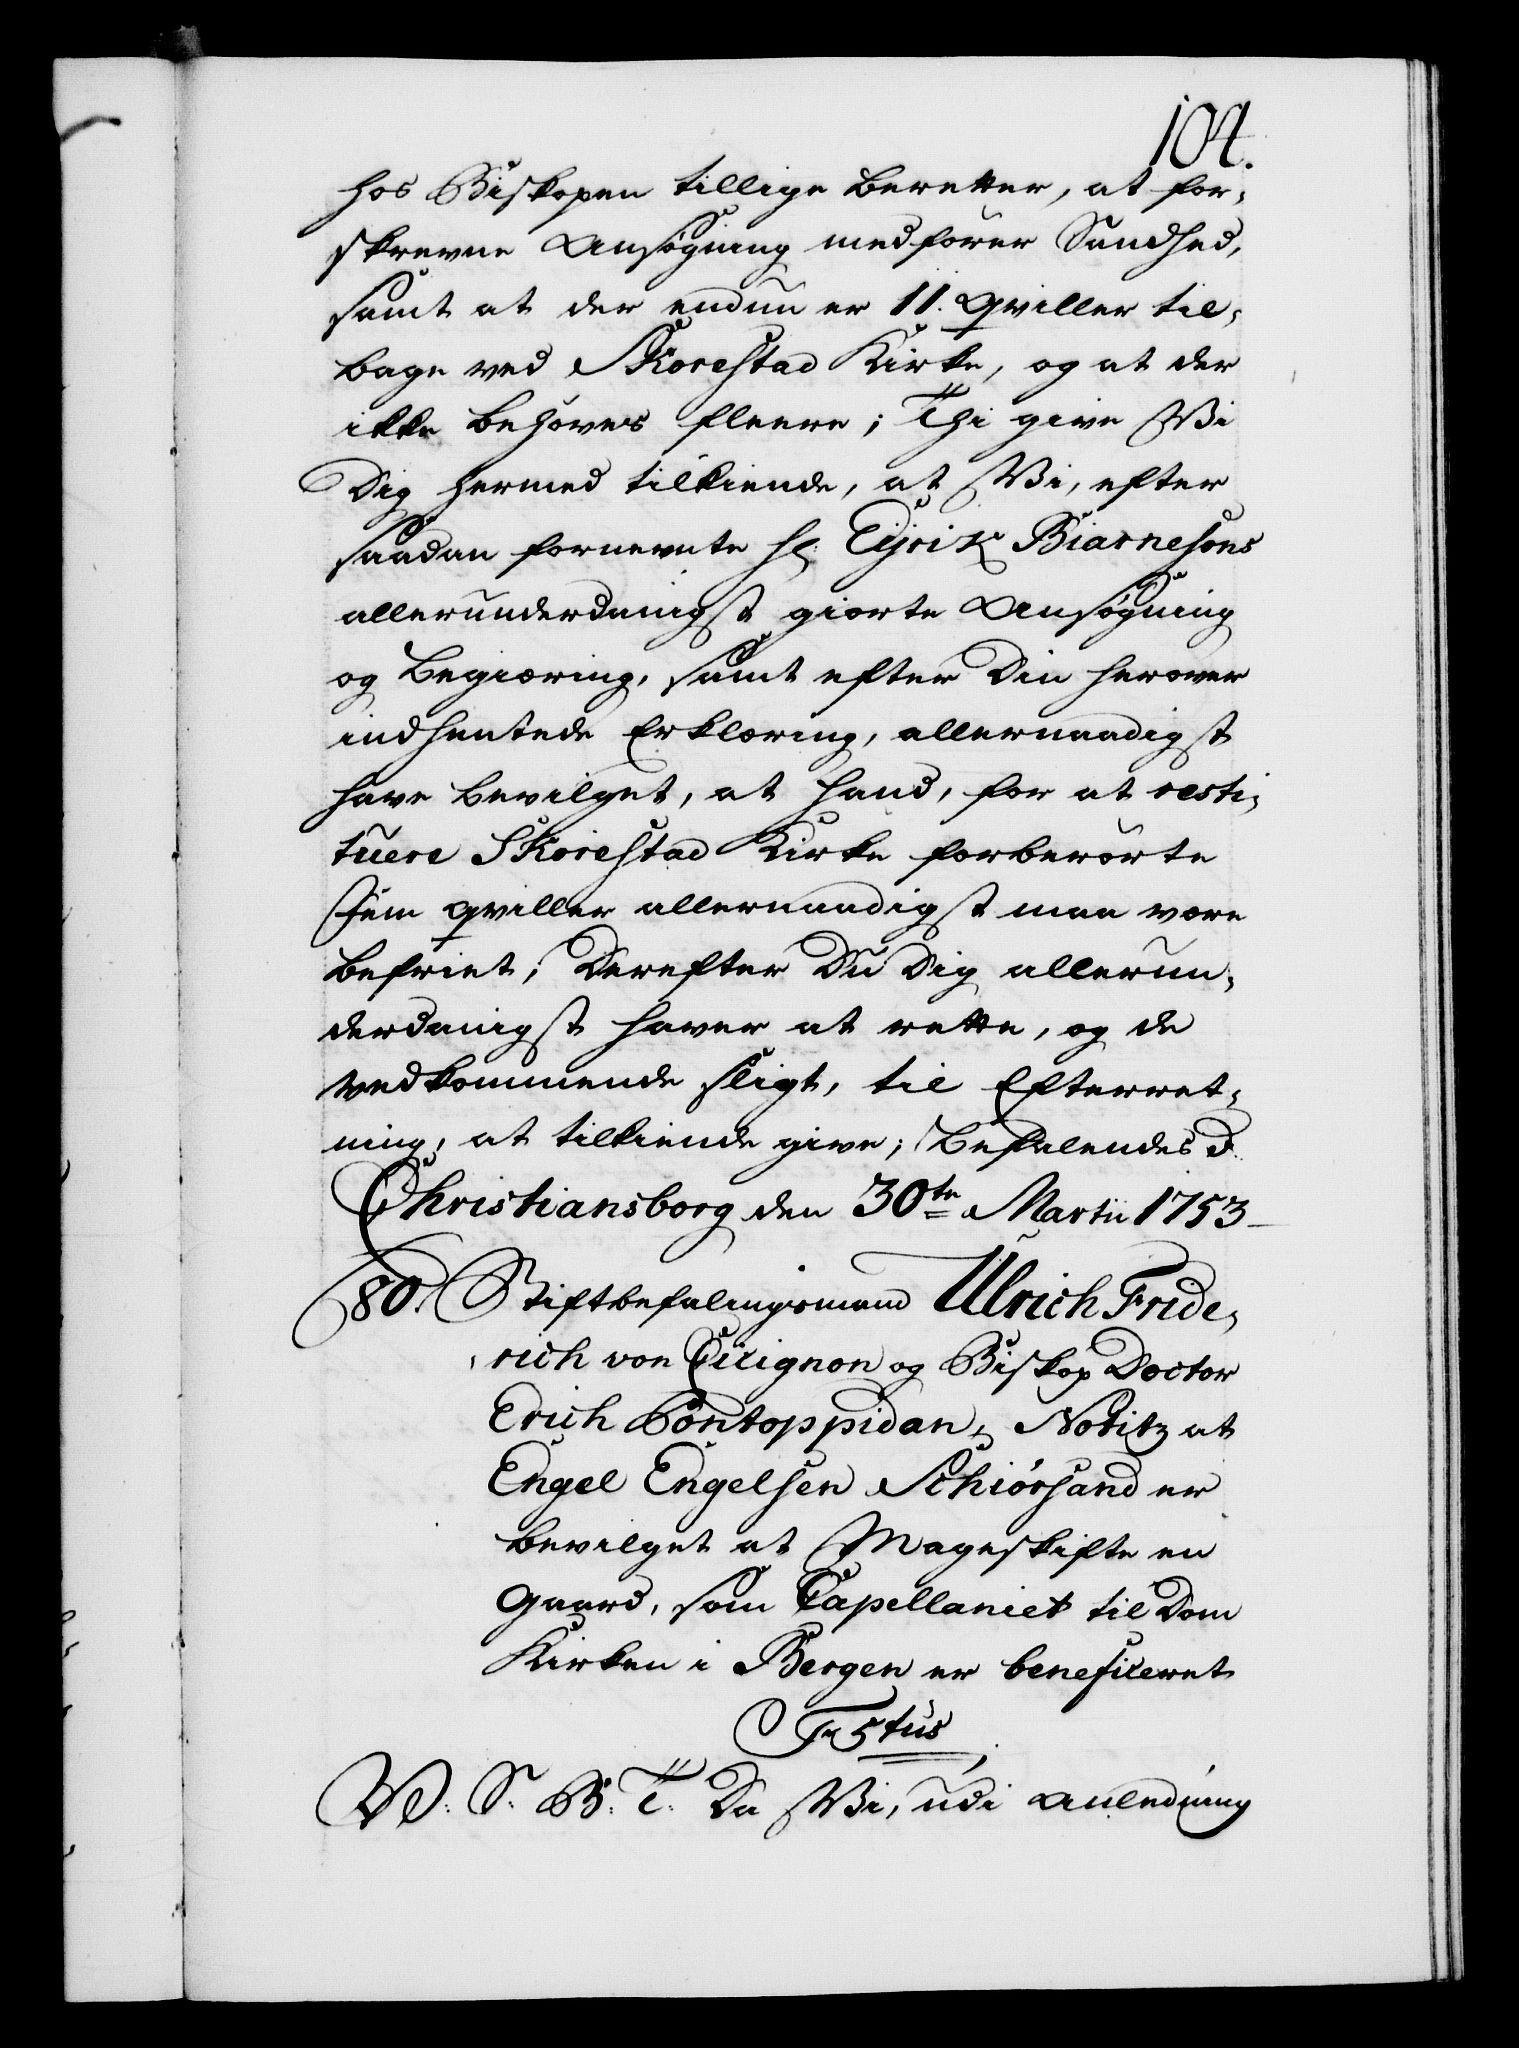 104.
hos Biskopen tillige beretter, at for-
skrevne Ansøgning medfører Sandhed,
samt at der endnu er 11. qviller til-
bage ved Skorestad Kirke, og at der
ikke behøves fleere; Thi give Vi
Dig hermed tilkiende, at Vi, efter
saadan fornevnte Hr. Eÿrik Biarnesons
allerunderdanigst giorte Ansøgning
og Begiæring, samt efter Din herover
indhentede Erklæring, allernaadigst
have bevilget, at hand, for at resti-
tuere Skorestad Kirke forberørte
Fem qviller allernaadigst maa være
befriet; Derefter Du Dig allerun-
derdanigst haver at rette, og de
vedkommende sligt, til Efterret-
ning, at tilkiende give; Befalendes D.
Christiansborg den 30te Martii 1753
80. Stiftbefalingsmand Ulrich Fride-
rich von Cicignon og Biskop Doctor
Erich Pontoppidan, Notitz at
Engel Engelsen Schiørsand er
bevilget at Mageskifte en
Gaard, som Capellaniet til Dom
Kirken i Bergen er beneficeret
Fr 5tus
V. S. B. T. Da Vi, udi anledning